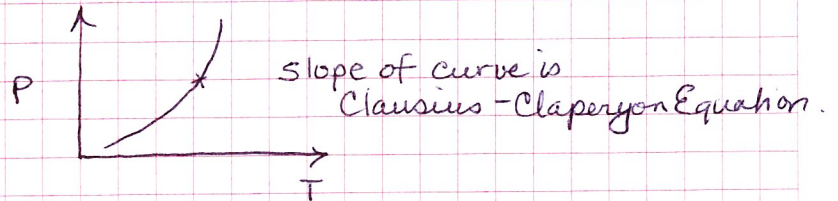 P
slope of curve is
Clausius-Claperyon Equation.
T